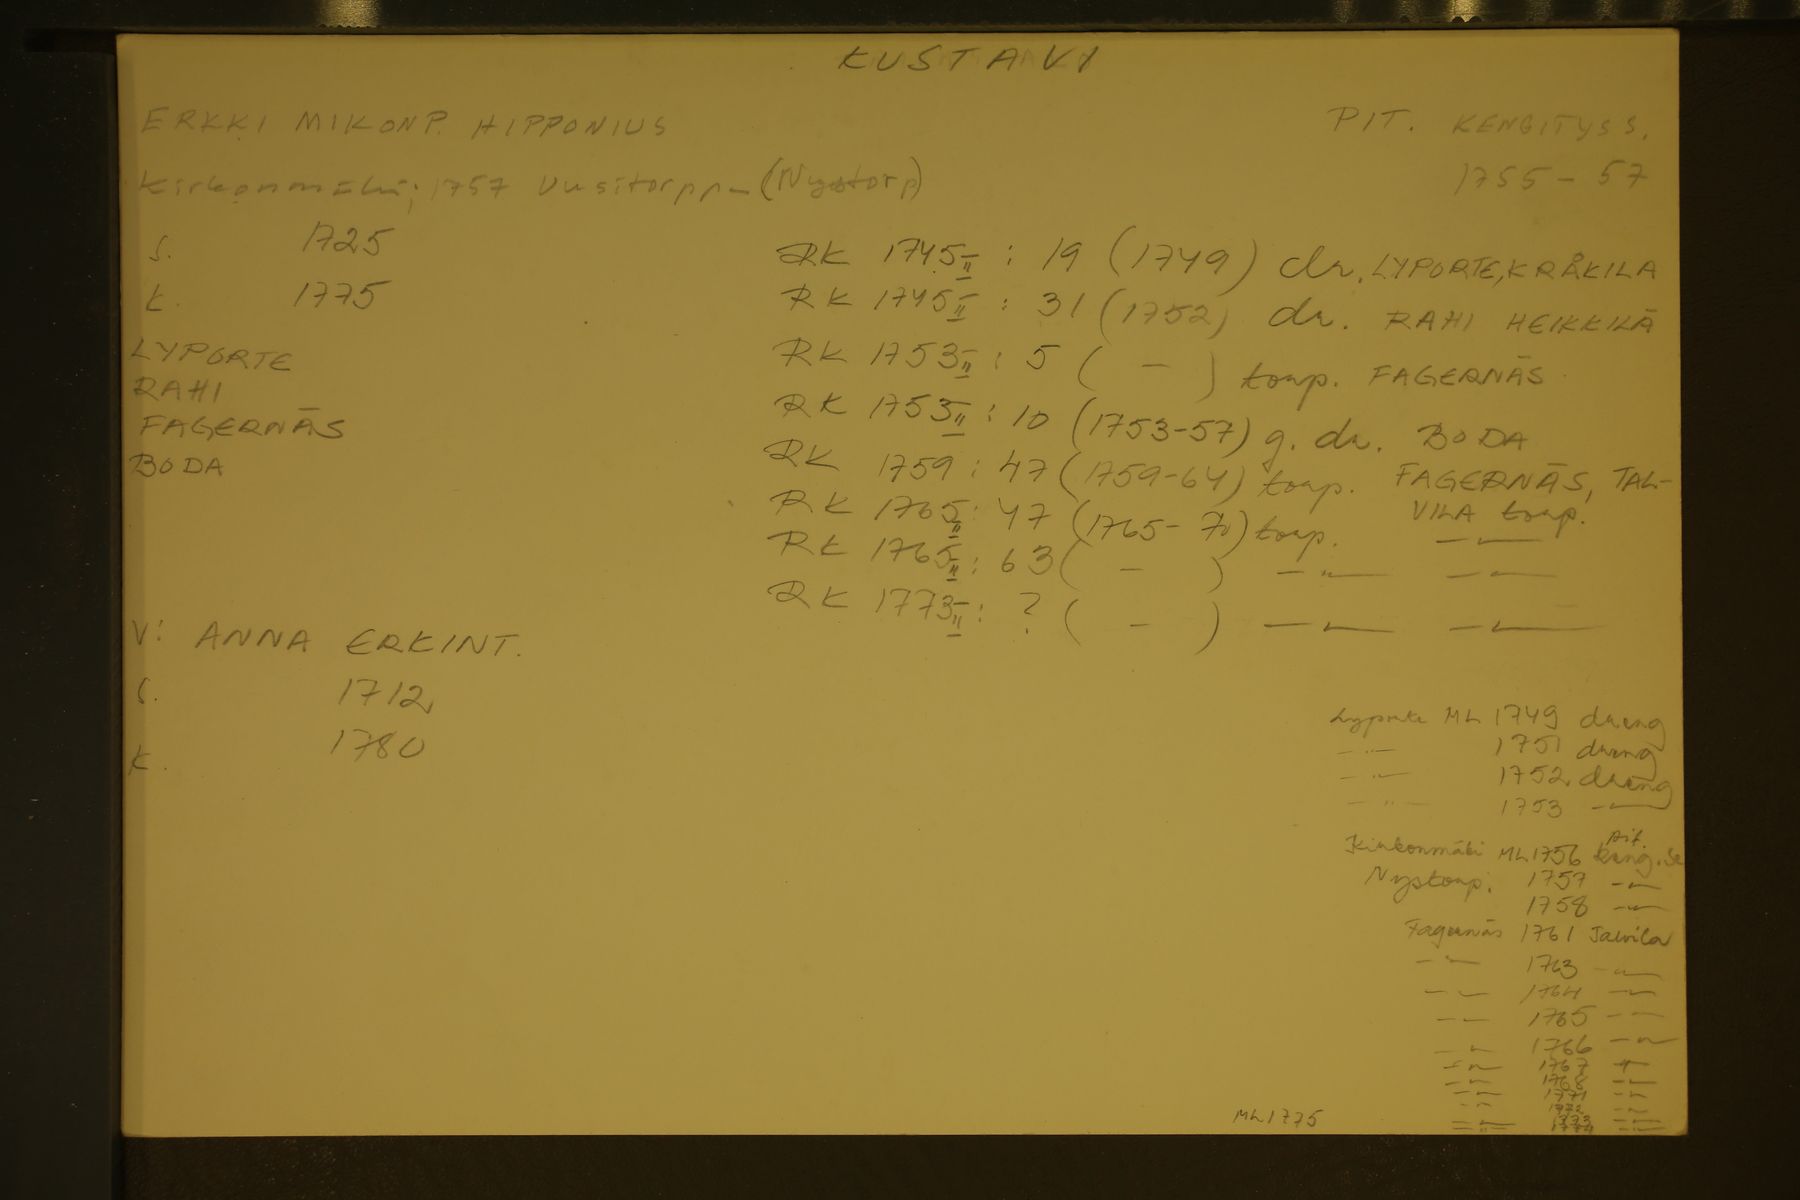 KUSTAVI
ERKKI MIKONP. HIPPONIUS
PIT. KENGITYSS.
Kirkonmäki; 1757 Uusitorppa (Nystorp)
1755-57
S. 1725
K. 1775
LYPORTE
RAHI
FAGERNÄS
BODA
RK 1745 II : 19 (1749) dr. LYPORTE, KRÅKILA
RK 1745 II : 31 (1752) dr. RAHI HEIKKILÄ
RK 1753 II : 5 ( - ) torp. FAGERNÄS
RK 1753 II : 10 (1753-57) g. dr. BODA
RK 1759 : 47 (1759-64) torp. FAGERNÄS, TAL-
VILA torp.
RK 1765 II : 47 (1765-70) torp. -"-
RK 1765 II : 63 ( - ) -"- -"-
RK 1773 II : ? ( - ) -"- -"-
V: ANNA ERKINT.
S. 1712
K. 1780
Lyporte ML 1749 dreng
-"- 1751 dreng
-"- 1752 dreng
-"- 1753 -"-
Kirkonmäki ML 1756 pit. keng.
Nystorp. 1757 -"-
1758 -"-
Fagernäs 1761 Talvila
-"- 1763 -"-
-"- 1764 -"-
-"- 1765 -"-
-"- 1766 -"-
-"- 1767 -"-
-"- 1768 -"-
-"- 1771 -"-
-"- 1772 -"-
-"- 1773 -"-
-"- 1774 -"-
ML 1775